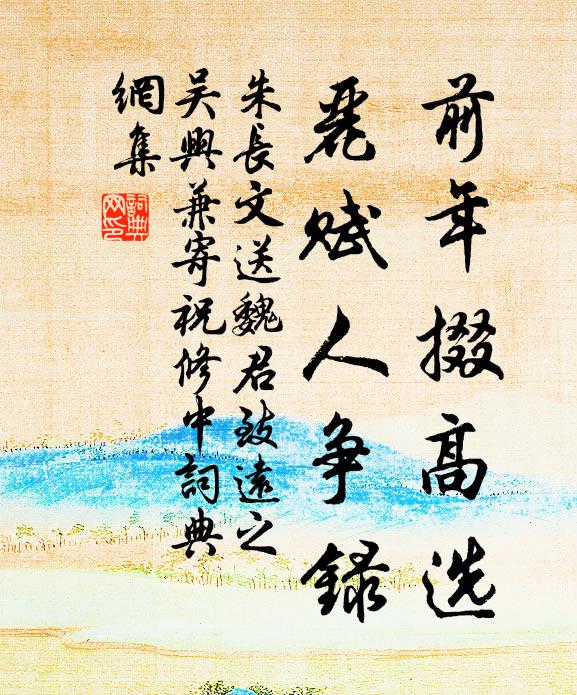 前年掇高选
丽赋人争録
朱長文送魏君致遠之
吴興兼寄祝修中詞典
網集
詞典
网印